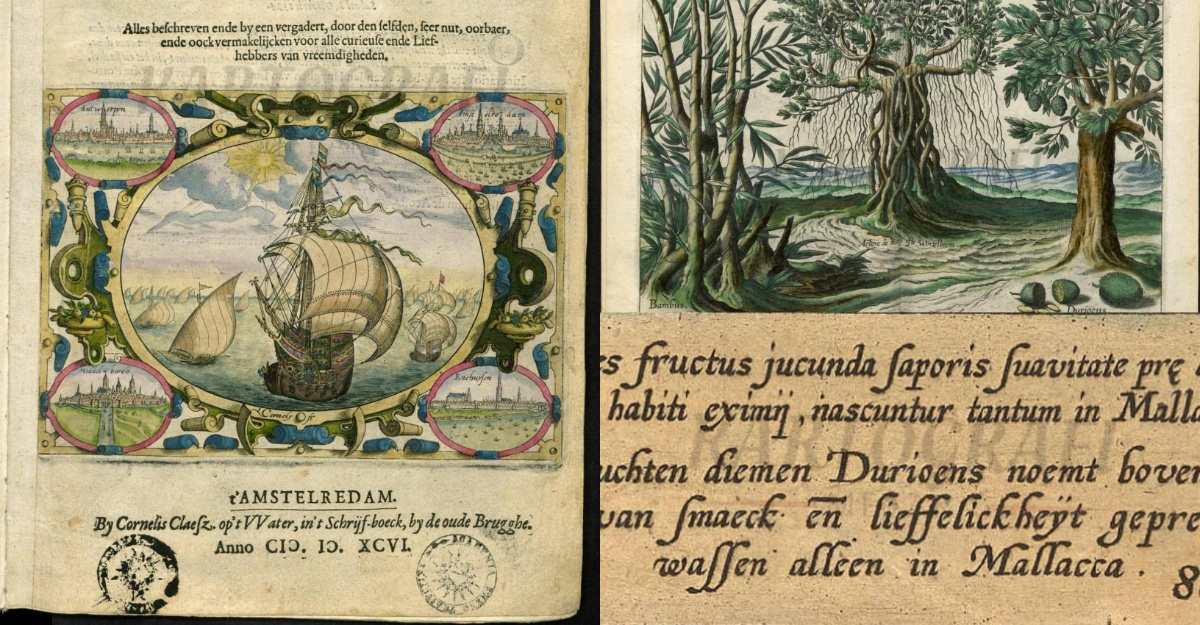 Alles beschreven ende by een vergadert, door den selfden, seer nut, oorbaer,
ende oock vermakelijcken voor alle curieuse ende Lief-
hebbers van vreemdigheden.
Antwerpen
Amstelredam
Middelborch
Enchuysen
t'AMSTELREDAM.
By Cornelis Claesz. op't VVater, in't Schrijf-boeck, by de oude Brugghe.
Anno CIↃ. IↃ. XCVI.
Arbore de
Bambus
Durioens
es fructus jucunda saporis suavitate prę
habiti eximij, nascuntur tantum in Malla
uchten diemen Durioens noemt boven
van smaeck en̄ lieffelickheyt gepre
wassen alleen in Mallacca.